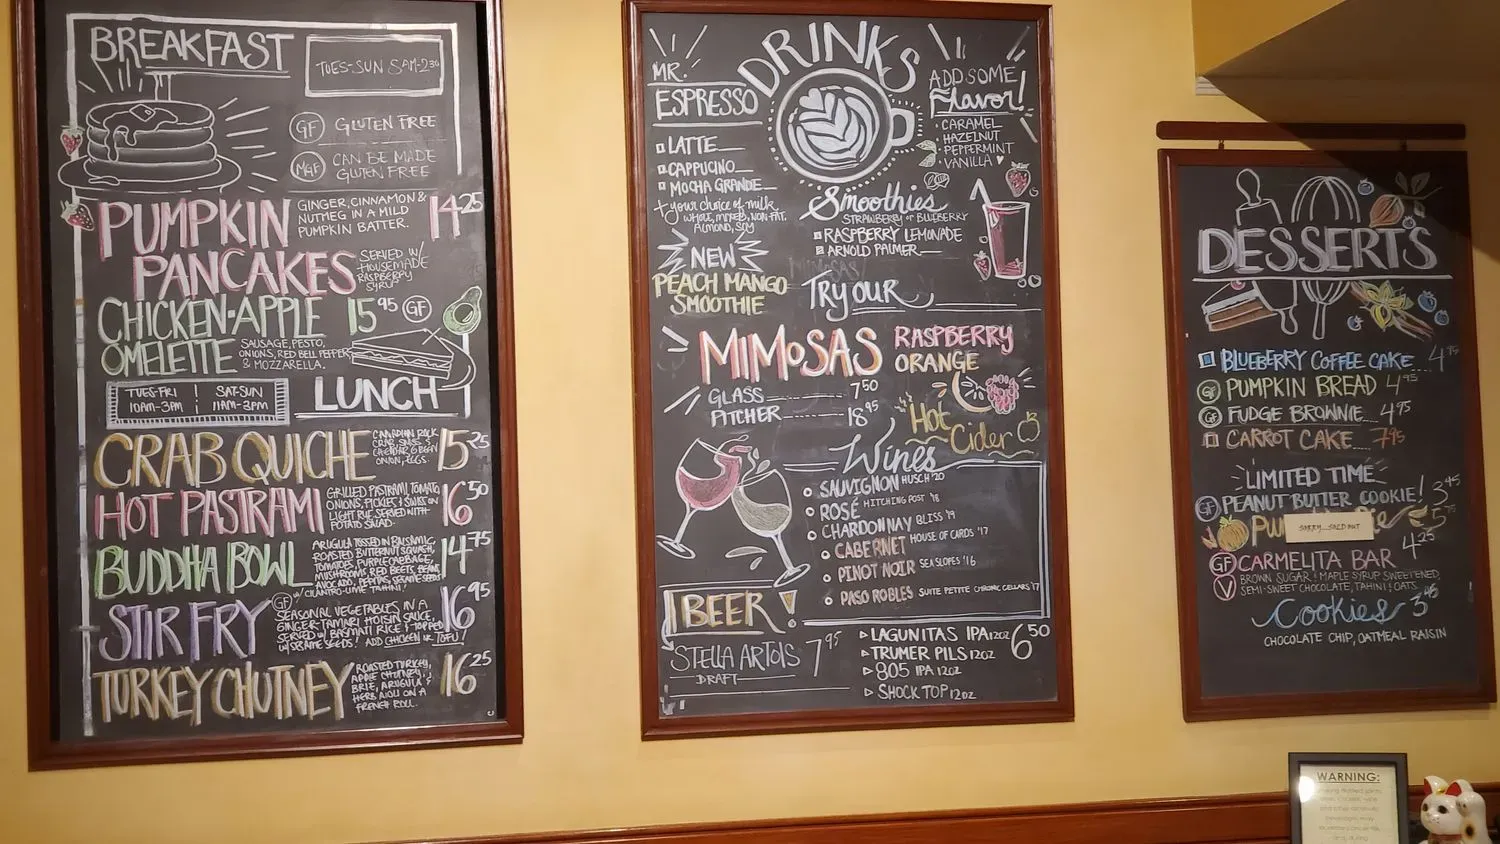 BREAKFAST
TUES-SUN 8AM-2:30
GF GLUTEN FREE
MGF CAN BE MADE
GLUTEN FREE
PUMPKIN
PANCAKES
GINGER, CINNAMON &
NUTMEG IN A MILD
PUMPKIN BATTER.
14 25
SERVED W/
HOUSEMADE
RASPBERRY
SYRUP
CHICKEN-APPLE
OMELETTE
15 95 GF
SAUSAGE, PESTO,
ONIONS, RED BELL PEPPER
& MOZZARELLA.
TUES-FRI
10AM-3PM
SAT-SUN
11AM-3PM
LUNCH
CRAB QUICHE
CANADIAN ROCK
CRAB, SWISS &
GREEN
ONION, EGGS.
15 25
HOT PASTRAMI
GRILLED PASTRAMI, TOMATO,
ONIONS, PICKLES & SWISS ON
LIGHT RYE. SERVED WITH
POTATO SALAD.
16 50
BUDDHA BOWL
ARUGULA TOSSED IN BALSAMIC,
ROASTED BUTTERNUT SQUASH,
TOMATOES, PURPLE CABBAGE,
MUSHROOMS, RED BEETS, BEANS,
AVOCADO, PEPITAS, SESAME SEEDS
W/ CILANTRO-LIME TAHINI!
14 75
STIR FRY
GF
SEASONAL VEGETABLES IN A
GINGER-TAMARI HOISIN SAUCE,
SERVED W/ BASMATI RICE & TOPPED
W/ SESAME SEEDS! ADD CHICKEN OR TOFU!
16 95
TURKEY CHUTNEY
ROASTED TURKEY,
APPLE CHUTNEY,
BRIE, ARUGULA &
HERB AIOLI ON A
FRENCH ROLL.
16 25
DRINKS
MR.
ESPRESSO
LATTE
CAPPUCINO
MOCHA GRANDE
+ your choice of milk
WHOLE, MIXED, NON FAT,
ALMOND, SOY
NEW
PEACH MANGO
SMOOTHIE
ADD SOME
Flavor!
CARAMEL
HAZELNUT
PEPPERMINT
VANILLA
Smoothies
STRAWBERRY or BLUEBERRY
RASPBERRY LEMONADE
ARNOLD PALMER
TRY OUR
MIMOSAS
RASPBERRY
ORANGE
GLASS 7 50
PITCHER 18 95
Hot
Cider
Wines
SAUVIGNON HUSCH '20
ROSÉ HITCHING POST '18
CHARDONNAY BLISS '19
CABERNET HOUSE OF CARDS '17
PINOT NOIR SEA SLOPES '16
PASO ROBLES SUITE PETITE CHRONIC CELLARS '17
BEER!
STELLA ARTOIS 7 95
DRAFT
LAGUNITAS IPA 12oz 6 50
TRUMER PILS 12oz
805 IPA 12oz
SHOCK TOP 12oz
DESSERTS
BLUEBERRY COFFEE CAKE
GF PUMPKIN BREAD 4 95
GF FUDGE BROWNIE 4 95
CARROT CAKE 7 95
LIMITED TIME
GF PEANUT BUTTER COOKIE! 3 45
SORRY...SOLD OUT
GF CARMELITA BAR 4 25
V BROWN SUGAR & MAPLE SYRUP SWEETENED,
SEMI-SWEET CHOCOLATE, TAHINI & OATS
Cookies 3 45
CHOCOLATE CHIP, OATMEAL RAISIN
WARNING: